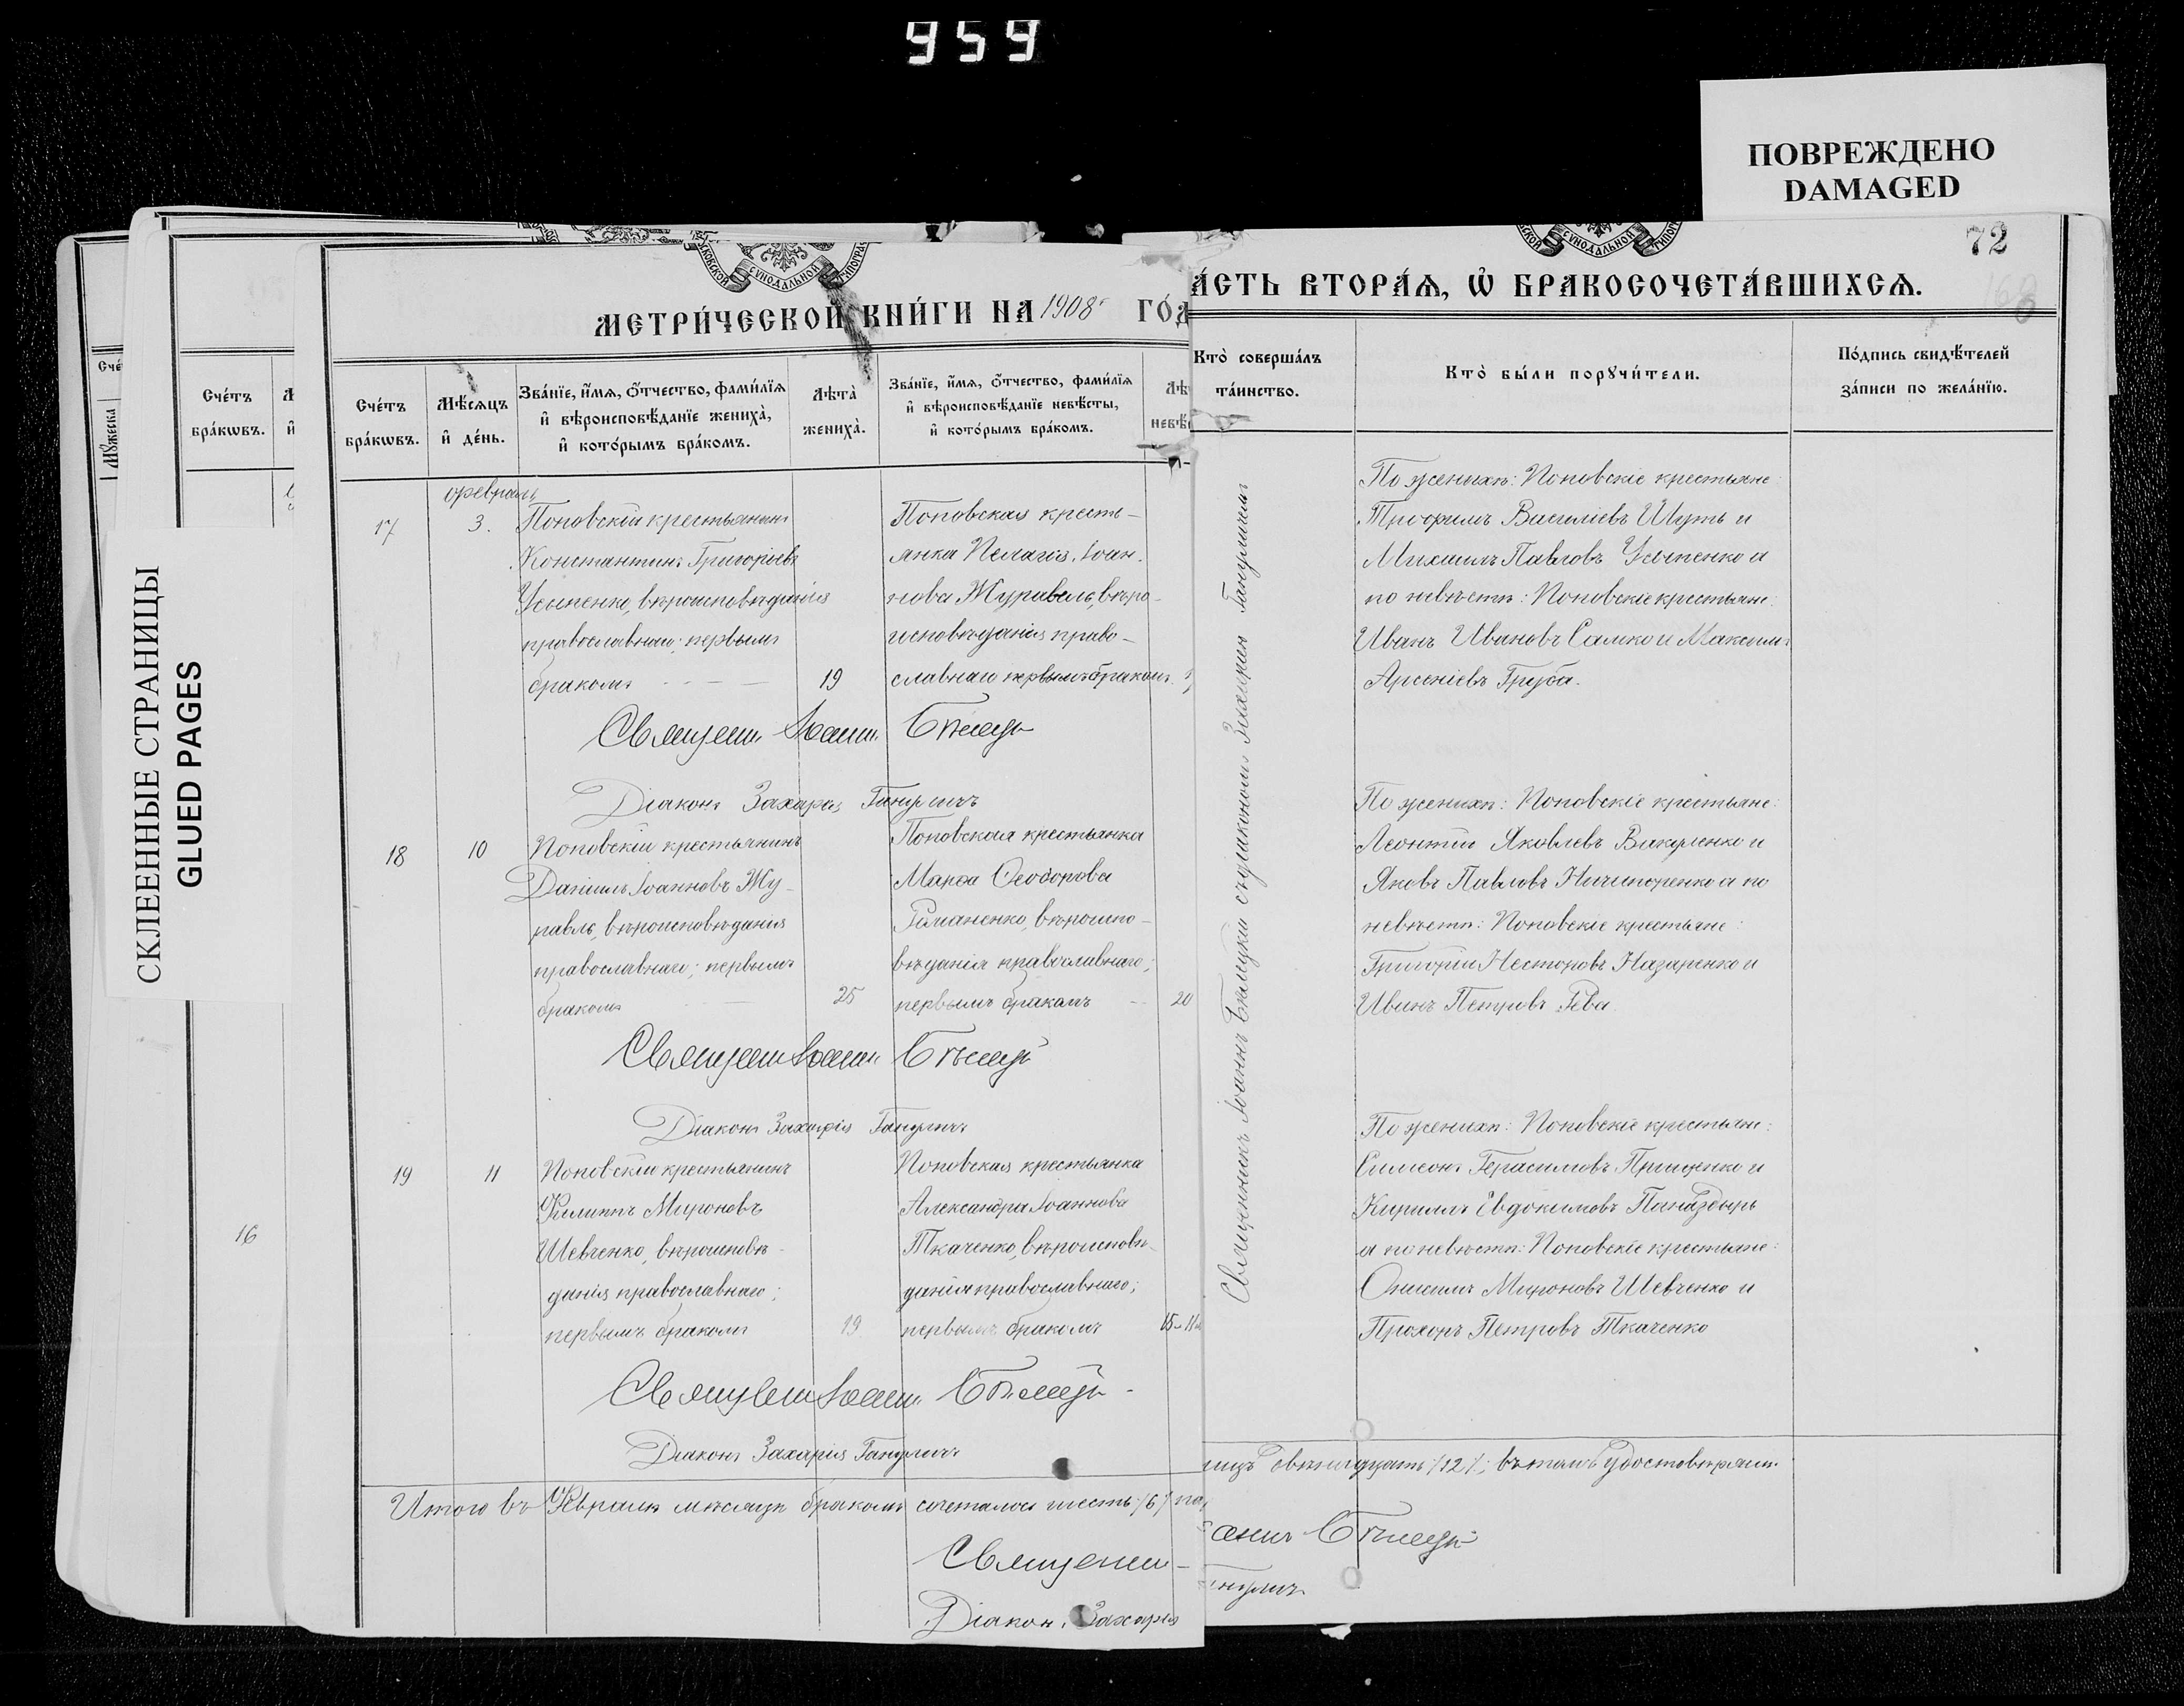 959
ПОВРЕЖДЕНО
DAMAGED
СКЛЕЕННЫЕ СТРАНИЦЫ
GLUED PAGES
72
МЕТРИ́ЧЕСКОЙ КНИ́ГИ НА 1908 ГО́Д
А́СТЬ ВТОРА́Ѧ, Ѡ҆ БРАКОСОЧЕТА́ВШИХСѦ.
Сче́тъ бра́кѡвъ.
Мѣ́сѧцъ и҆ де́нь.
Зва́нїе, и҆́мѧ, ѻ҆́тчество, фами́лїѧ
и҆ вѣроисповѣ́данїе жениха̀,
и҆ кото́рымъ бра́комъ.
Лѣта̀ жениха̀.
Зва́нїе, и҆́мѧ, ѻ҆́тчество, фами́лїѧ
и҆ вѣроисповѣ́данїе невѣ́сты,
и҆ кото́рымъ бра́комъ.
Кто̀ соверша́лъ
та́инство.
Кто̀ бы́ли порꙋчи́тели.
По́дпись свидѣ́телей
за́писи по жела́нїю.
февраль
17
3.
Поповскій крестьянинъ
Константинъ Григоріевъ
Усыпенко, вѣроисповѣданія
православнаго; первымъ
бракомъ
19
Поповская кресть-
янка Пелагія Іоан-
нова Журавель, вѣро-
исповѣданія право-
славнаго первымъ бракомъ.
По женихѣ: Поповскіе крестьяне:
Трофимъ Василіевъ Шуть и
Михаилъ Павловъ Усыпенко а
по невѣстѣ: Поповскіе крестьяне:
Иванъ Ивановъ Самко и Максимъ
Арсеніевъ Груба.
Священн. Іоаннъ Бѣлецк
Діаконъ Захарія Гапуличъ
18
10
Поповскій крестьянинъ
Даніилъ Іоанновъ Жу-
равль, вѣроисповѣданія
православнаго; первымъ
бракомъ
25
Поповская крестьянка
Марѳа Ѳеодорова
Романенко, вѣроиспо-
вѣданія православнаго;
первымъ бракомъ
20
По женихѣ: Поповскіе крестьяне:
Леонтій Яковлевъ Вакуленко и
Яковъ Павловъ Ничипоренко а по
невѣстѣ: Поповскіе крестьяне:
Григорій Несторовъ Назаренко и
Иванъ Петровъ Рева.
Священн Іоаннъ
Діаконъ Захарія Гапуличъ
19
11
Поповскій крестьянинъ
Филиппъ Мироновъ
Шевченко, вѣроисповѣ-
данія православнаго;
первымъ бракомъ
19
Поповская крестьянка
Александра Іоаннова
Ткаченко, вѣроисповѣ-
данія православнаго;
первымъ бракомъ
По женихѣ: Поповскіе крестьяне:
Симеонъ Герасимовъ Прищенко и
Кириллъ Евдокимовъ
а по невѣстѣ: Поповскіе крестьяне:
Онисимъ Мироновъ Шевченко и
Прохоръ Петровъ Ткаченко
Священн Іоаннъ
Діаконъ Захарія Гапуличъ
Священникъ Іоаннъ съ діакономъ Захаріею Гапуличемъ
Итого въ Февралѣ мѣсяцѣ бракомъ сочеталось шесть /6/
лицъ двѣнадцать /12/; въ томъ удостовѣряемъ
Священн
Діаконъ Захарія
16